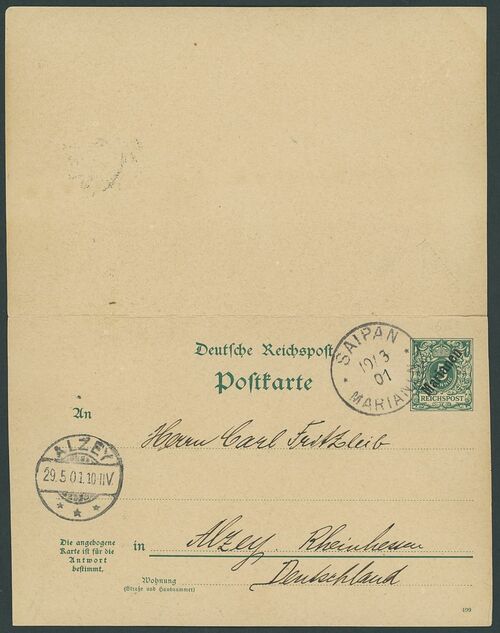 Deutsche Reichspost
Postkarte
SAIPAN
19/3
01
MARIANEN
Marianen
REICHSPOST
An
Herrn Carl
ALZEY
29.5.01.10-11V.
Die angebogene
Karte ist für die
Antwort
bestimmt.
in Alzey. Rheinhessen
Deutschland
Wohnung
(Straße und Hausnummer)